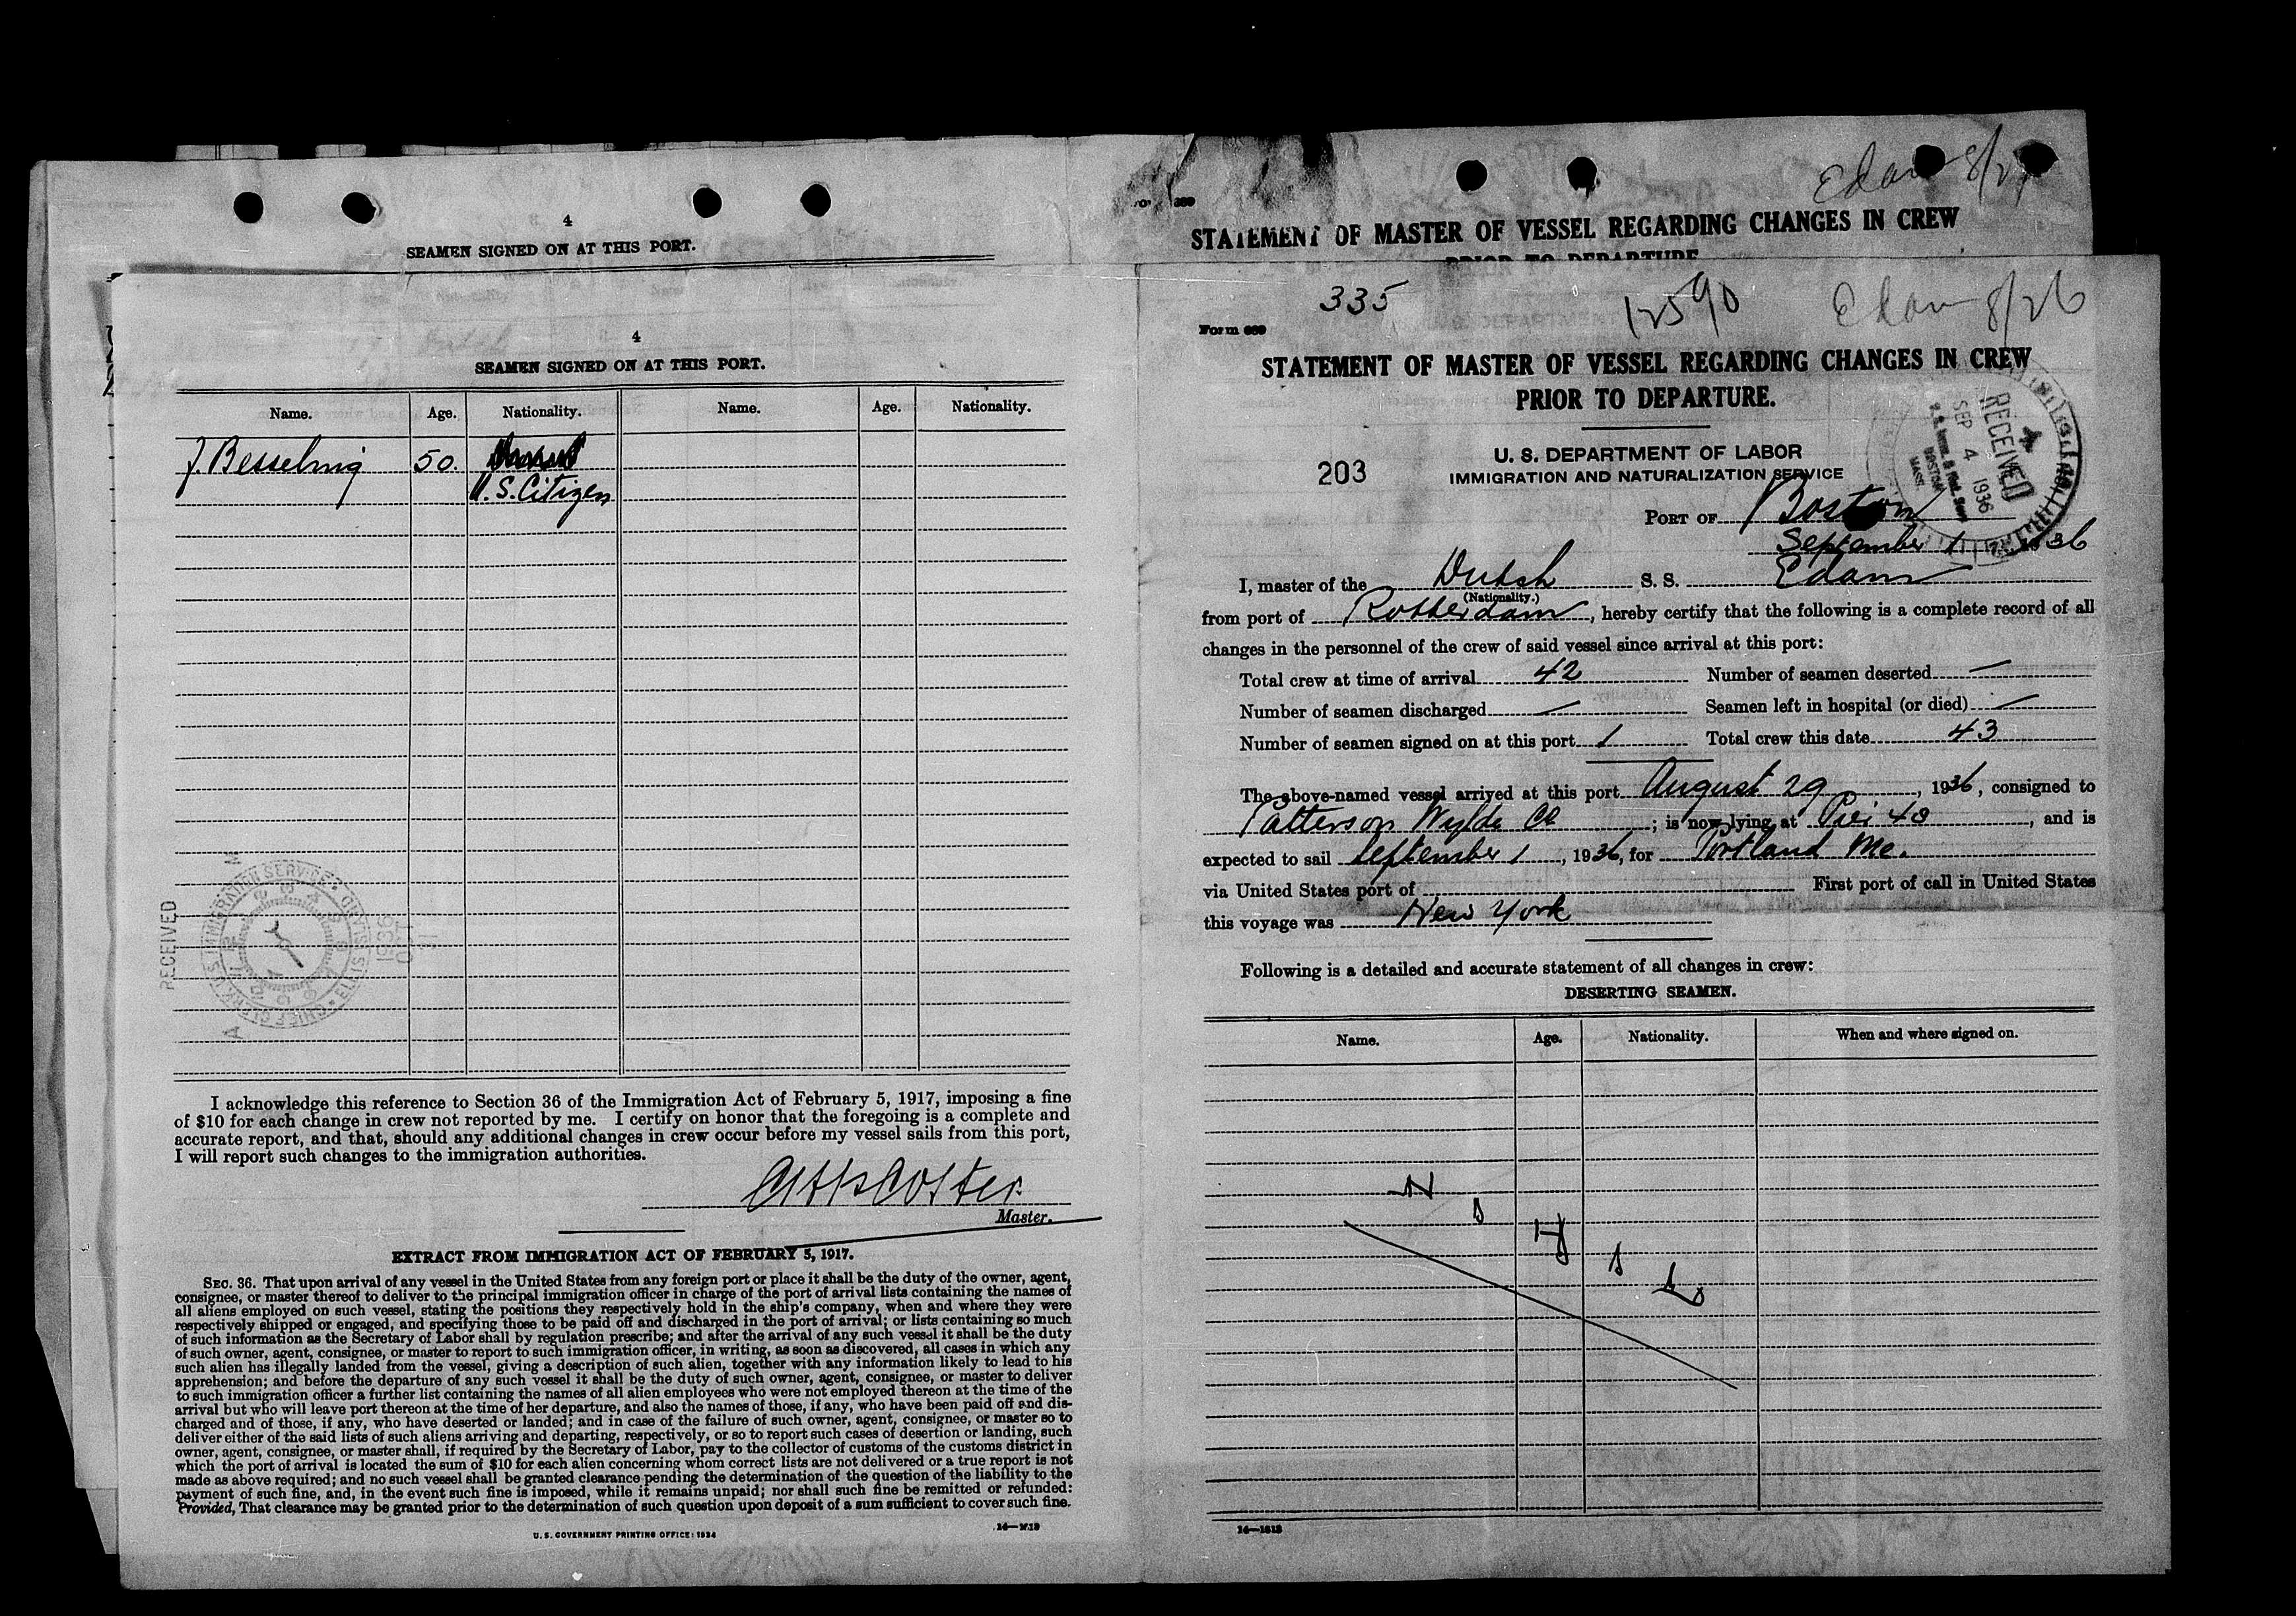 4
SEAMEN SIGNED ON AT THIS PORT.
4
SEAMEN SIGNED ON AT THIS PORT.
Name. Age. Nationality. Name. Age. Nationality.
J. Besselmig 50.
U.S. Citizen
RECEIVED
I acknowledge this reference to Section 36 of the Immigration Act of February 5, 1917, imposing a fine
of $10 for each change in crew not reported by me. I certify on honor that the foregoing is a complete and
accurate report, and that, should any additional changes in crew occur before my vessel sails from this port,
I will report such changes to the immigration authorities.
Master.
EXTRACT FROM IMMIGRATION ACT OF FEBRUARY 5, 1917.
SEC. 36. That upon arrival of any vessel in the United States from any foreign port or place it shall be the duty of the owner, agent,
consignee, or master thereof to deliver to the principal immigration officer in charge of the port of arrival lists containing the names of
all aliens employed on such vessel, stating the positions they respectively hold in the ship's company, when and where they were
respectively shipped or engaged, and specifying those to be paid off and discharged in the port of arrival; or lists containing so much
of such information as the Secretary of Labor shall by regulation prescribe; and after the arrival of any such vessel it shall be the duty
of such owner, agent, consignee, or master to report to such immigration officer, in writing, as soon as discovered, all cases in which any
such alien has illegally landed from the vessel, giving a description of such alien, together with any information likely to lead to his
apprehension; and before the departure of any such vessel it shall be the duty of such owner, agent, consignee, or master to deliver
to such immigration officer a further list containing the names of all alien employees who were not employed thereon at the time of the
arrival but who will leave port thereon at the time of her departure, and also the names of those, if any, who have been paid off and dis-
charged and of those, if any, who have deserted or landed; and in case of the failure of such owner, agent, consignee, or master so to
deliver either of the said lists of such aliens arriving and departing, respectively, or so to report such cases of desertion or landing, such
owner, agent, consignee, or master shall, if required by the Secretary of Labor, pay to the collector of customs of the customs district in
which the port of arrival is located the sum of $10 for each alien concerning whom correct lists are not delivered or a true report is not
made as above required; and no such vessel shall be granted clearance pending the determination of the question of the liability to the
payment of such fine, and, in the event such fine is imposed, while it remains unpaid; nor shall such fine be remitted or refunded:
Provided, That clearance may be granted prior to the determination of such question upon deposit of a sum sufficient to cover such fine.
U. S. GOVERNMENT PRINTING OFFICE: 1934
Edam 8/27
STATEMENT OF MASTER OF VESSEL REGARDING CHANGES IN CREW
PRIOR TO DEPARTURE
335 12590 Edam 8/26
Form 689
STATEMENT OF MASTER OF VESSEL REGARDING CHANGES IN CREW
PRIOR TO DEPARTURE.
RECEIVED
SEP 4 1936
BOSTON
MASS.
U. S. DEPARTMENT OF LABOR
203 IMMIGRATION AND NATURALIZATION SERVICE
PORT OF Boston
September 1 1936
I, master of the Dutch S. S. Edam
(Nationality.)
from port of Rotterdam, hereby certify that the following is a complete record of all
changes in the personnel of the crew of said vessel since arrival at this port:
Total crew at time of arrival 42 Number of seamen deserted —
Number of seamen discharged — Seamen left in hospital (or died) —
Number of seamen signed on at this port 1 Total crew this date 43
The above-named vessel arrived at this port August 29, 1936, consigned to
Patterson Wylde Co; is now lying at Pier 48, and is
expected to sail September 1, 1936, for Portland Me.
via United States port of First port of call in United States
this voyage was New York
Following is a detailed and accurate statement of all changes in crew:
DESERTING SEAMEN.
Name. Age. Nationality. When and where signed on.
14—1613